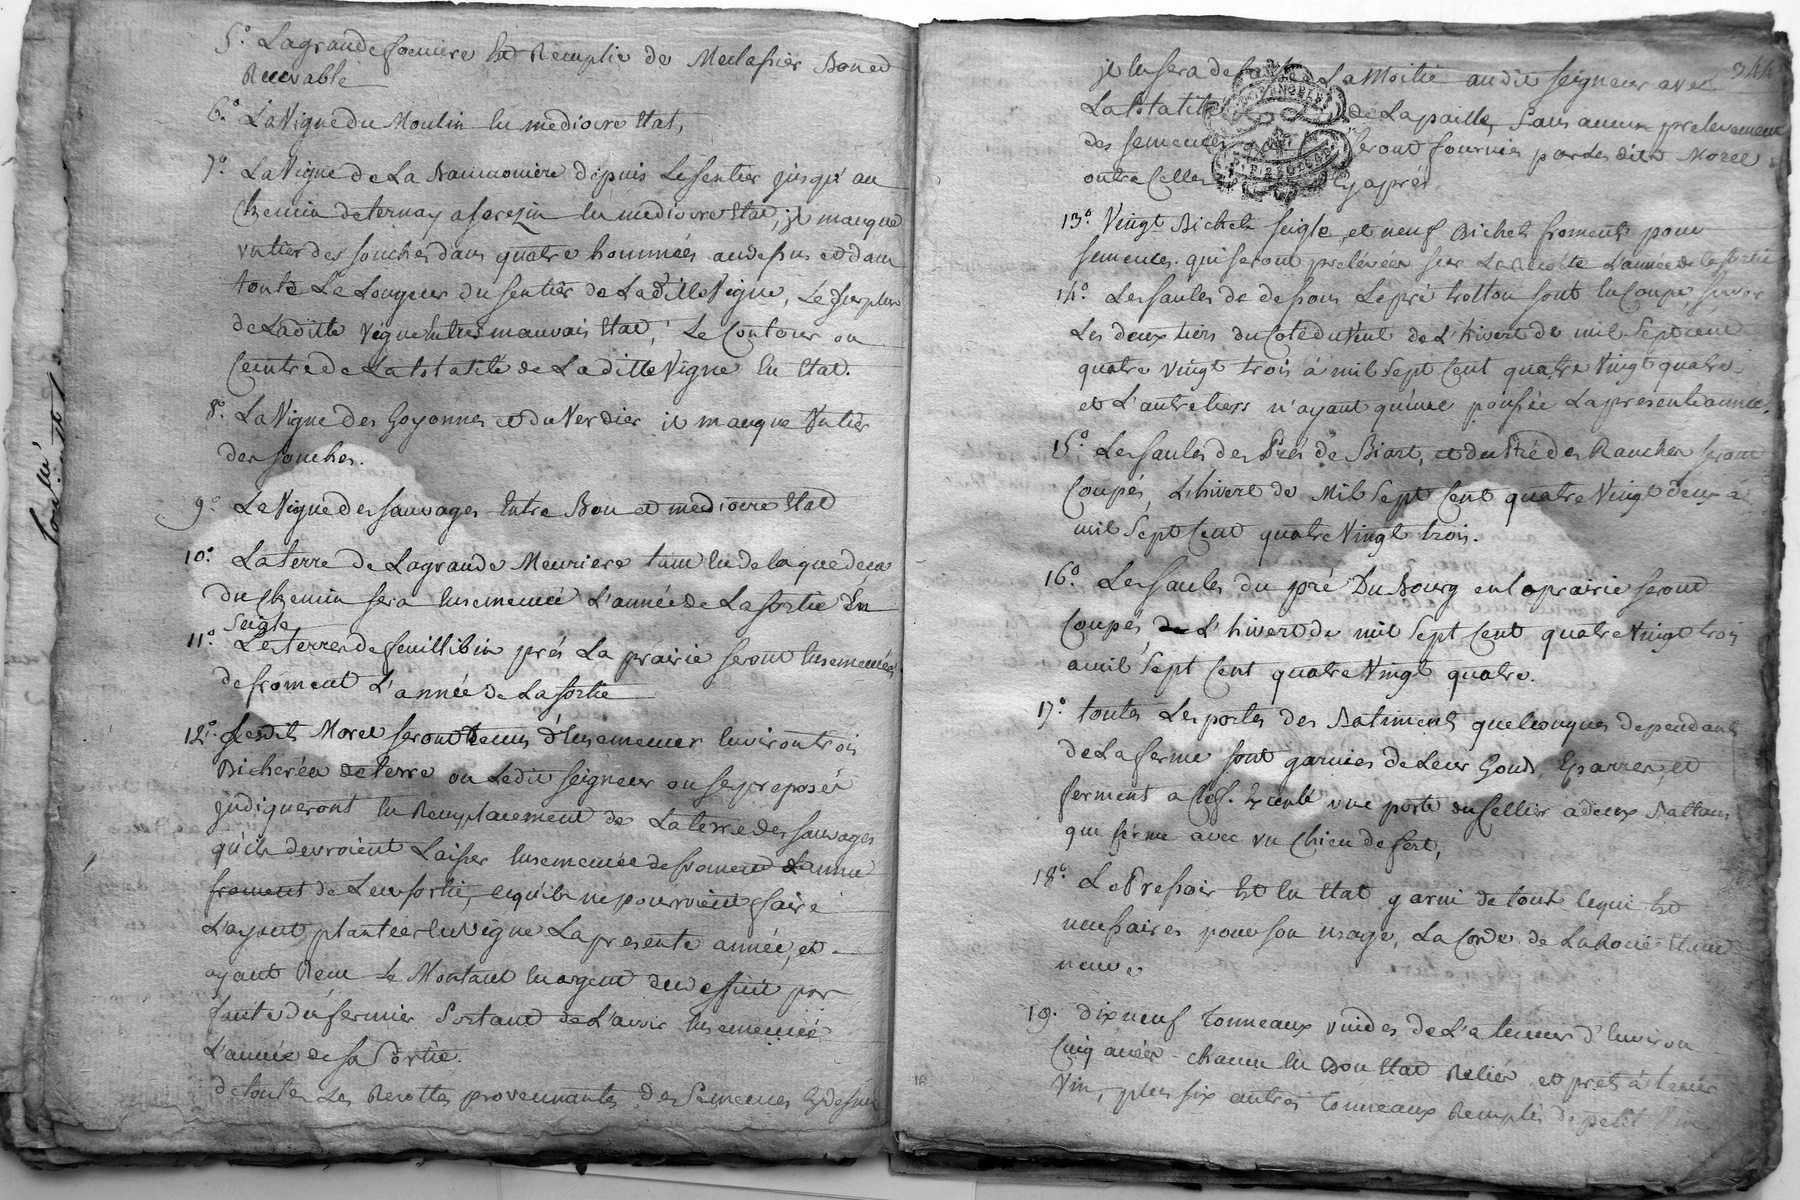 5.° La grande foeniere Est Remplie de Meclassier Bon et
Recevable
6.° La Vigne du Moulin En mediocre Etat,
7.° La Vigne de La Naumoniere depuis Le sentier jusqu'au
Chemin de ternay a serezin En mediocre Etat, il manque
un tier des souches dans quatre hommées au dessus et dans
toute Le Longeur du sentier de La ditte Vigne, Le Surplus
de Laditte Vigne En tres mauvais Etat, Le Contour ou
Ceintre de La totalité de La ditte Vigne En Etat.
8.° La Vigne des Goyonnes et du Verdier il manque Un tier
des souches.
9.° La Vigne des sauvages Entre Bon et mediocre Etat
10.° La terre de La grande Meuriere tant En dela que deca
du Chemin sera Ensemencé L'année de La sortie En
Seigle
11.° Les terres de feuillibin prés La prairie seront Ensemencées
de froment L'année de La sortie
12.° Lesdits Morel seront tenus d'Ensemencer Environ trois
Bicherées de terre ou Ledit seigneur ou ses preposés
indiqueront En Remplacement de La terre des sauvages
qu'ils devroient Laisser Ensemencée de froment L'année
froment de Leur sortie, Ce qu'ils ne pourroient faire
L'ayant plantée En Vigne La presente année, et
ayant Recu Le Montant En argent du par
faute du fermier Sortant de L'avoir Ensemencé
L'année de sa Sortie.
de toutes Les Recottes provennantes des Semences Cy dessus
344
il en sera de La Moitié audit seigneur avec
La totalité de La paille, Sans aucun prelevement
des semences seront fournies par Les dits Morel
outre Celles Cy aprés.
13.° Vingt Bichets seigle, et neuf Bichets froments pour
semences. qui seront prelevées sur La Recolte L'année de la sortie
14.° Les saules de dessous Le pré trotton sont En Coupe, savoir
Les deux tiers du Coté du Vent de L'hivert de mil Sept cent
quatre Vingt trois á mil Sept Cent quatre Vingt quatre
et L'autre tiers n'ayant qu'une pousée La presente année.
15.° Les saules des Prés de Biart, et du Pré des Ranches seront
Coupés, L'hivert de Mil Sept Cent quatre Vingt deux á
mil Sept Cent quatre Vingt trois.
16.° Les saules du pré Du Bourg en la prairie seront
Coupés de L'hivert de mil Sept Cent quatre Vingt trois
a mil Sept Cent quatre Vingt quatre.
17.° toutes Les portes des Batiments quelconques dependants
de La ferme sont garnies de Leur Gonds, Eparres, et
ferment a Clef. Excepté une porte du Cellier a deux Battans
qui ferme avec un Chien de fert,
18.° Le Pressoir Est En Etat garni de tout Ce qui Est
necessaires pour son usage, La Corde de La Roue Etant
neuve
19.° dix neuf Tonneaux vuides de La teneur d'Environ
Cinq anées - chacun En Bon Etat Reliés et prets á tenir
Vin, plus six autres Tonneaux Remplis de petit Vin